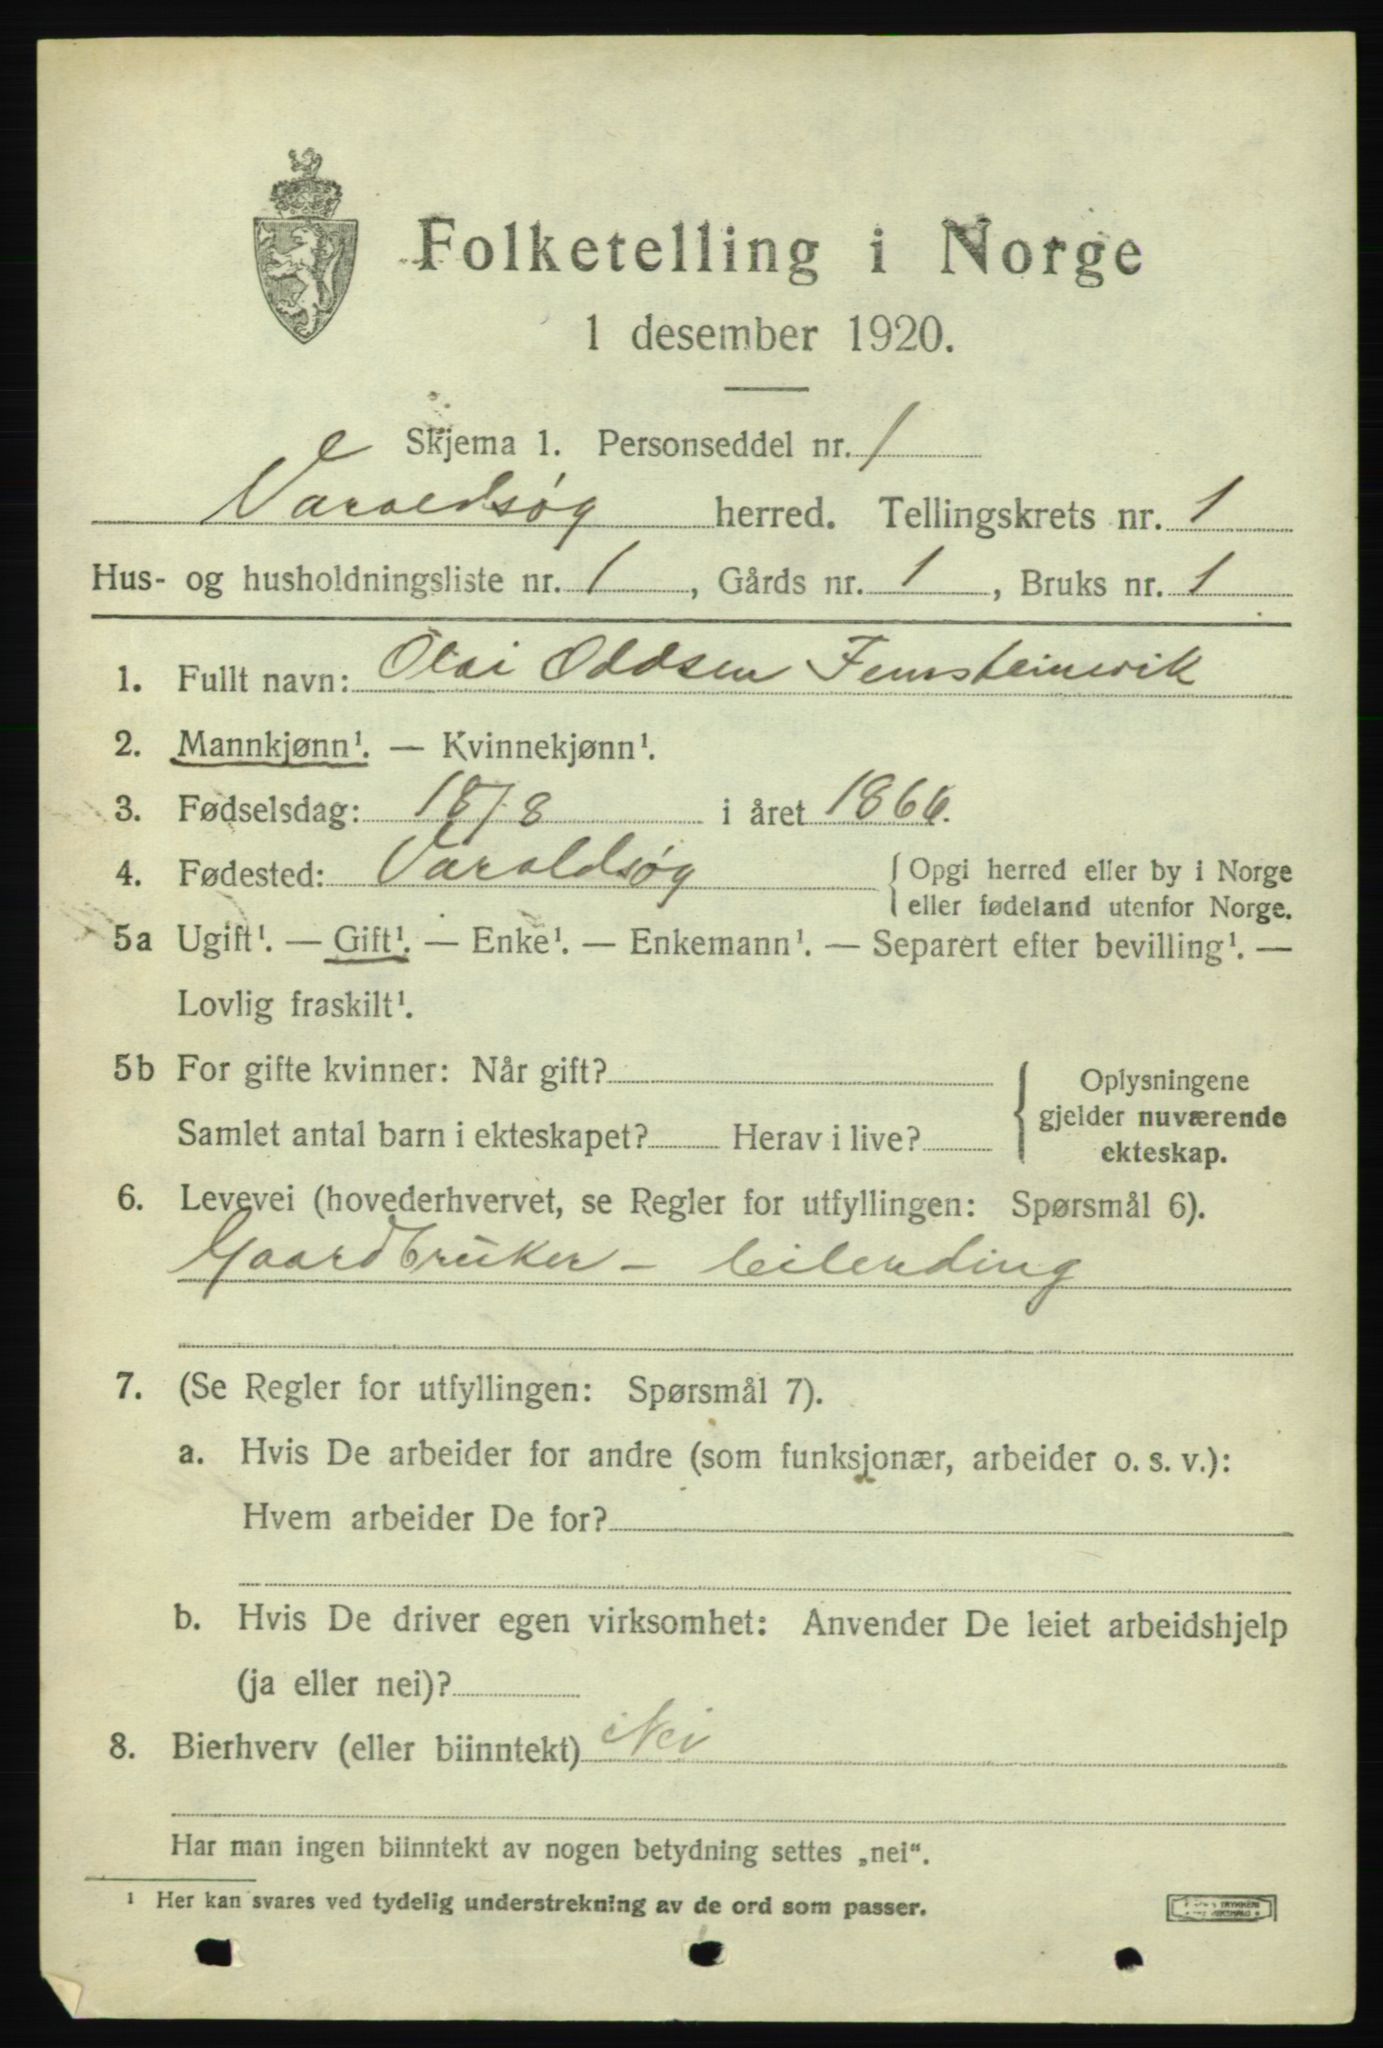 Folketelling i Norge
1 desember 1920.
Skjema 1. Personseddel nr. 1
Varaldsøy herred. Tellingskrets nr. 1
Hus- og husholdningsliste nr. 1, Gårds nr. 1, Bruks nr. 1
1. Fullt navn: Olai Oddsen Femsteinevik
2. Mannkjønn¹. — Kvinnekjønn¹.
3. Fødselsdag: 18/8 i året 1866.
4. Fødested: Varaldsøy { Opgi herred eller by i Norge
eller fødeland utenfor Norge.
5a Ugift¹. — Gift¹. — Enke¹. — Enkemann¹. — Separert efter bevilling¹. —
Lovlig fraskilt¹.
5b For gifte kvinner: Når gift?
Samlet antal barn i ekteskapet? Herav i live?
{ Oplysningene
gjelder nuværende
ekteskap.
6. Levevei (hovederhvervet, se Regler for utfyllingen: Spørsmål 6).
Gaardbruker – leilending
7. (Se Regler for utfyllingen: Spørsmål 7).
a. Hvis De arbeider for andre (som funksjonær, arbeider o. s. v.):
Hvem arbeider De for?
b. Hvis De driver egen virksomhet: Anvender De leiet arbeidshjelp
(ja eller nei)?
8. Bierhverv (eller biinntekt) Nei
Har man ingen biinntekt av nogen betydning settes „nei“.
¹ Her kan svares ved tydelig understrekning av de ord som passer.